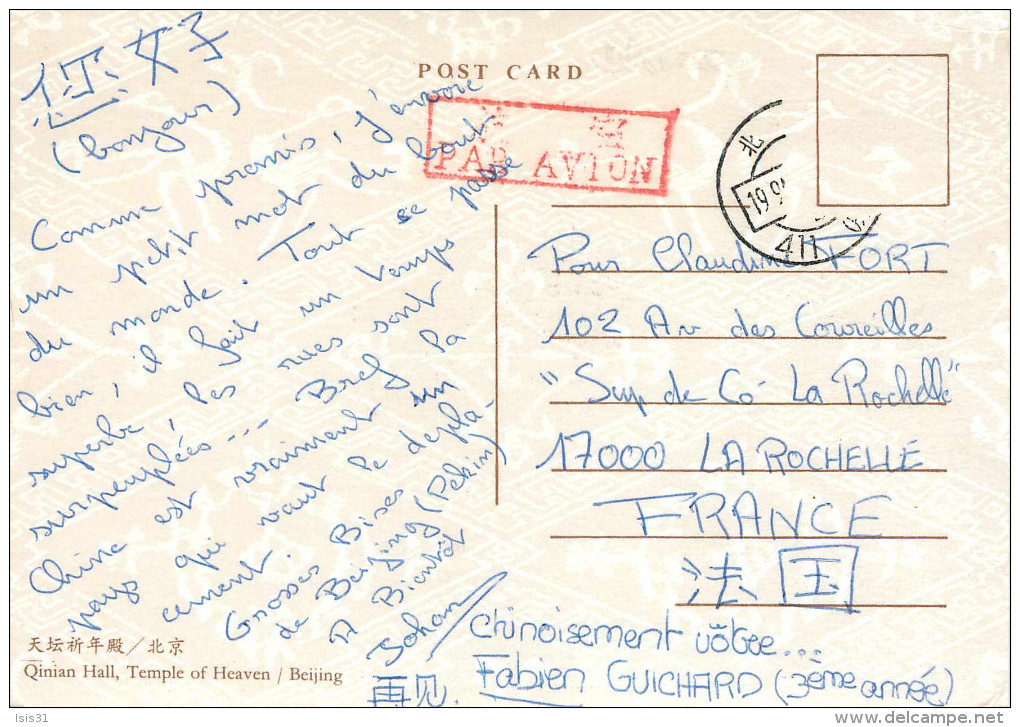 您好
(bonjour)
Comme promis, j'envoie
un petit mot du bout
du monde. Tout se passe
bien, il fait un temps
superbe, les rues sont
surpeuplées... Bref la
Chine est vraiment un
pays qui vaut le dépla-
cement.
Grosses Bises
de Beijing (Pekin)
A Bientôt
Johan/
再见.
天坛祈年殿/北京
Qinian Hall, Temple of Heaven / Beijing
POST CARD
PAR AVION
北
411
Pour Claudine FORT
102 Av des Coureilles
"Sup de Cô La Rochelle"
17000 LA ROCHELLE
FRANCE
法国
Chinoisement vôtre...
Fabien GUICHARD (3ème année)
Isis31